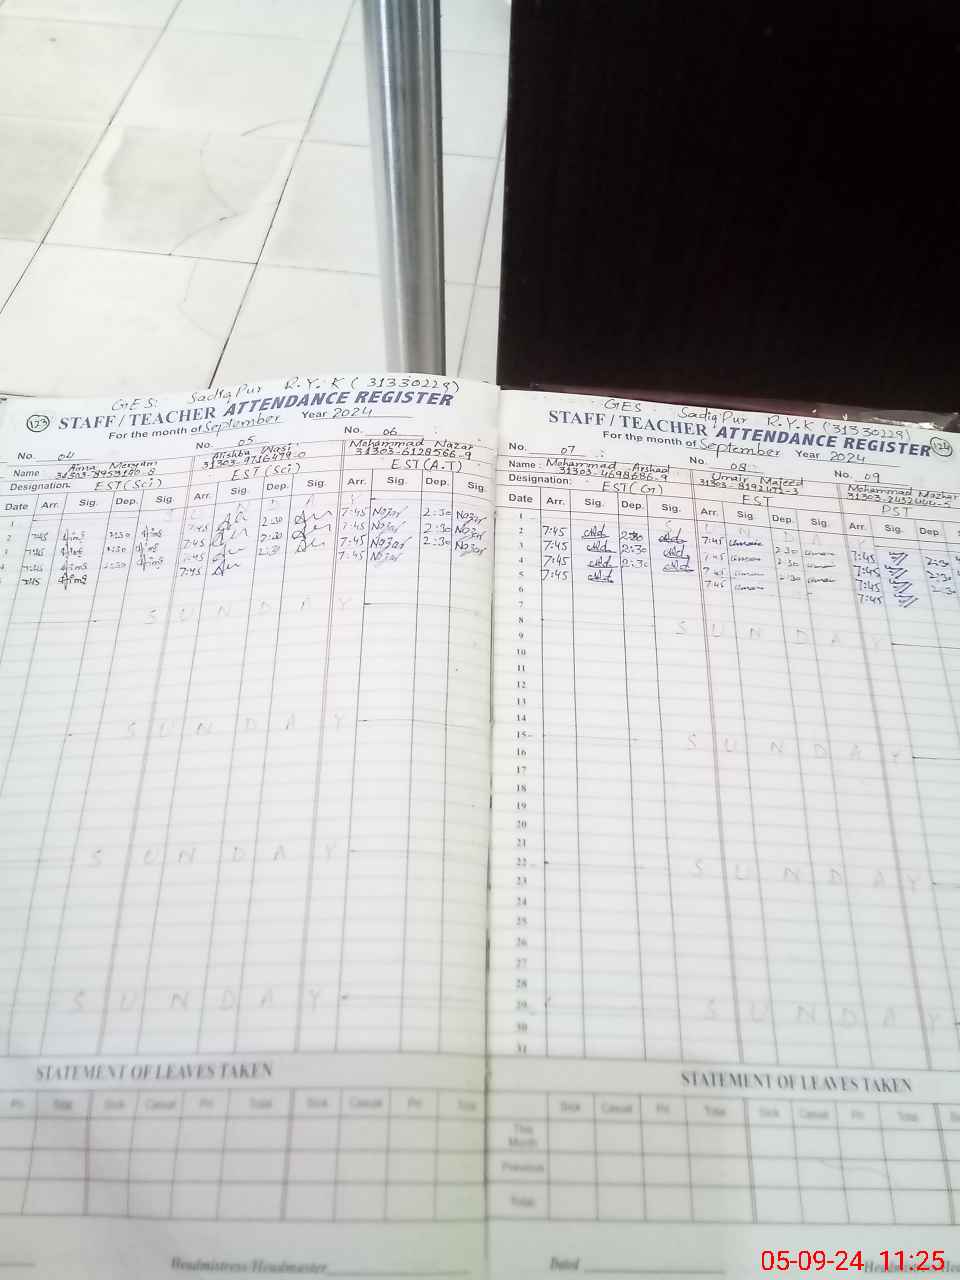 GES: Sadiq Pur R.Y.K (31330229)
123 STAFF/TEACHER ATTENDANCE REGISTER
For the month of September Year 2024
No. 04 No. 05 No. 06
Name: Aima Maryam Alishba Wasi Mohammad Nazar
31303-6128566-9
Designation: EST(Sci) EST(Sci) EST(A.T)
Date Arr. Sig. Dep. Sig. Arr. Sig. Dep. Sig. Arr. Sig. Dep. Sig.
1
2 7:45 2:30 7:45 2:30 7:45 Nazar 2:30 Nazar
3 7:45 2:30 7:45 2:30 7:45 Nazar 2:30 Nazar
4 7:45 2:30 7:45 2:30 7:45 Nazar 2:30 Nazar
5 7:45 7:45 7:45 Nazar
SUNDAY
SUNDAY
SUNDAY
SUNDAY
STATEMENT OF LEAVES TAKEN
Pri Total Sick Casual Pri Total Sick Casual Pri Total
Headmistress/Headmaster
GES: Sadiq Pur R.Y.K (31330229)
STAFF/TEACHER ATTENDANCE REGISTER 124
For the month of September Year 2024
No. 07 No. 08 No. 09
Name: Mohammad Arshad Umair Majeed Mohammad Mazhar
31303-4698686-9
Designation: EST(G) EST PST
Date Arr. Sig. Dep. Sig. Arr. Sig. Dep. Sig. Arr. Sig. Dep
1
2 7:45 2:30 7:45 2:30 7:45 2:30
3 7:45 2:30 7:45 2:30 7:45 2:30
4 7:45 2:30 7:45 2:30 7:45 2:30
5 7:45 7:45 7:45
6
7
8 SUNDAY
9
10
11
12
13
14
15 SUNDAY
16
17
18
19
20
21
22 SUNDAY
23
24
25
26
27
28
29 SUNDAY
30
31
STATEMENT OF LEAVES TAKEN
Sick Casual Pri Total Sick Casual Pri Total
This Month
Previous
Total
Dated
05-09-24 11:25